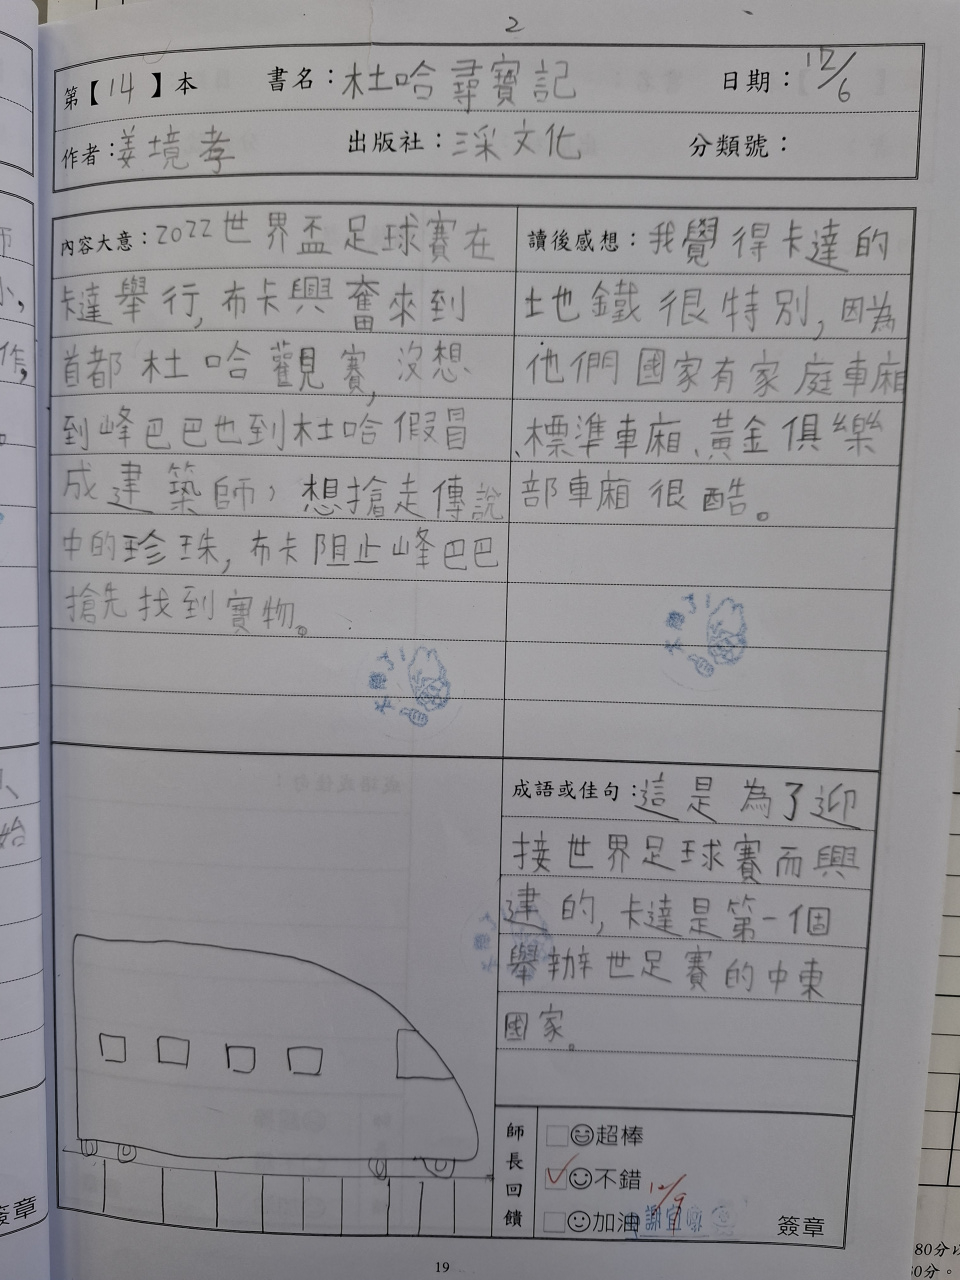 2
第【14】本 書名：杜哈尋寶記 日期：12/6
作者：姜境孝 出版社：三采文化 分類號：
內容大意：2022世界盃足球賽在
卡達舉行,布卡興奮來到
首都杜哈觀賽,沒想
到峰巴巴也到杜哈假冒
成建築師,想搶走傳說
中的珍珠,布卡阻止峰巴巴
搶先找到寶物。
讀後感想：我覺得卡達的
地鐵很特別,因為
他們國家有家庭車廂
、標準車廂、黃金俱樂
部車廂很酷。
成語或佳句：這是為了迎
接世界足球賽而興
建的,卡達是第一個
舉辦世足賽的中東
國家。
師長回饋
超棒
不錯 12/9
加油
簽章
19
師
小,
作,
始
簽章
80分以
60分。